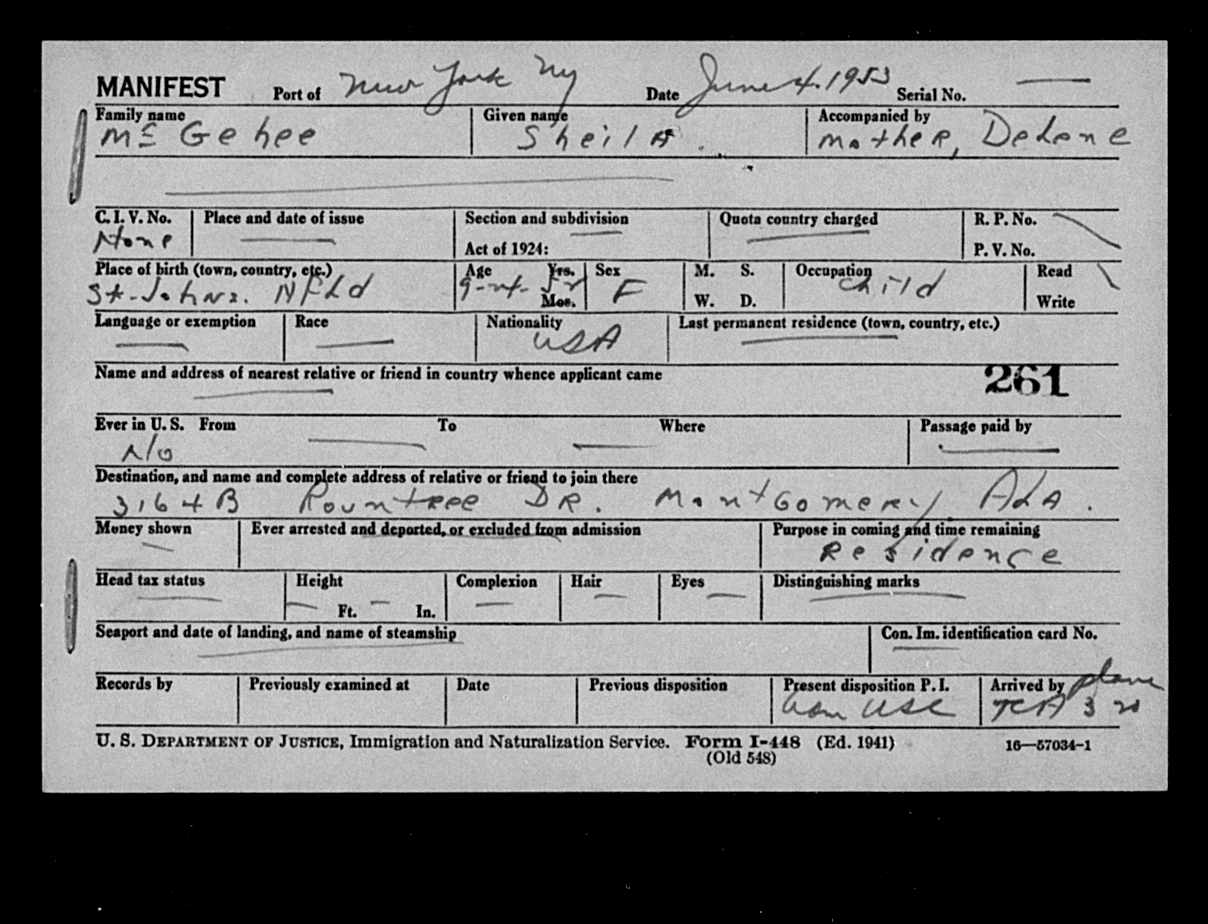 MANIFEST Port of New York Ny Date June 4. 1953 Serial No. —
Family name Given name Accompanied by
Mc Gehee Sheila. Mother, Delane
C. I. V. No. Place and date of issue Section and subdivision Quota country charged R. P. No.
None Act of 1924: P. V. No.
Place of birth (town, country, etc.) Age Yrs. Sex M. S. Occupation Read
St-Johns. NFLd Mos. F W. D. Child Write
Language or exemption Race Nationality Last permanent residence (town, country, etc.)
USA
Name and address of nearest relative or friend in country whence applicant came
261
Ever in U. S. From To Where Passage paid by
No
Destination, and name and complete address of relative or friend to join there
3164B Rountree DR. Montgomery ALA.
Money shown Ever arrested and deported, or excluded from admission Purpose in coming and time remaining
Residence
Head tax status Height Complexion Hair Eyes Distinguishing marks
Ft. In.
Seaport and date of landing, and name of steamship Con. Im. identification card No.
Records by Previously examined at Date Previous disposition Present disposition P. I. Arrived by plane
adm USC TCA 320
U. S. DEPARTMENT OF JUSTICE, Immigration and Naturalization Service. Form I-448 (Ed. 1941) 16—57034-1
(Old 548)